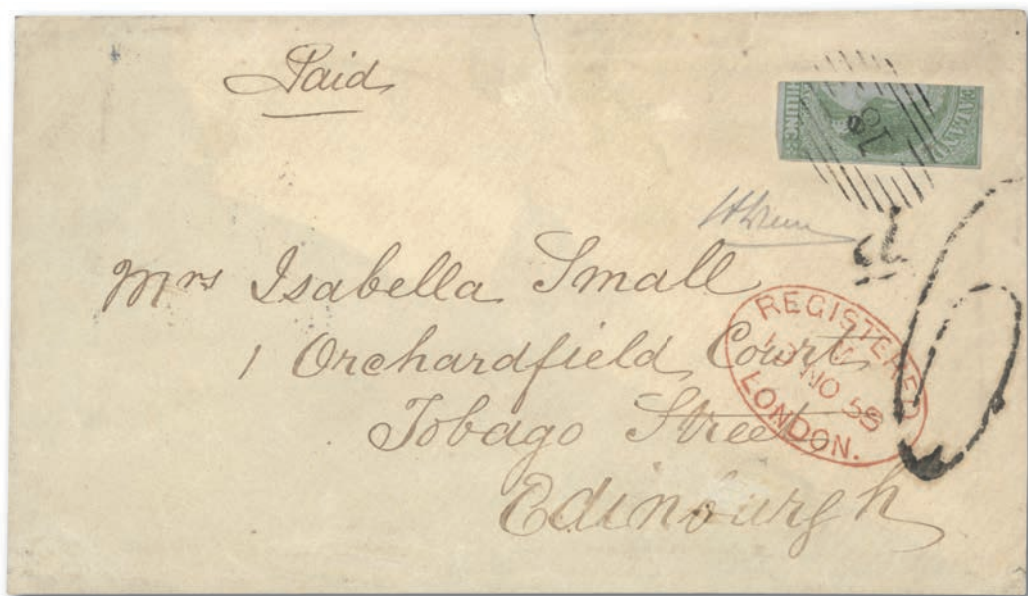 Paid
EALAND
HILLING
18
Mrs Isabella Small
1 Orchardfield Court
Tobago Street
Edinburgh
REGISTERED
NO 59
LONDON.
6